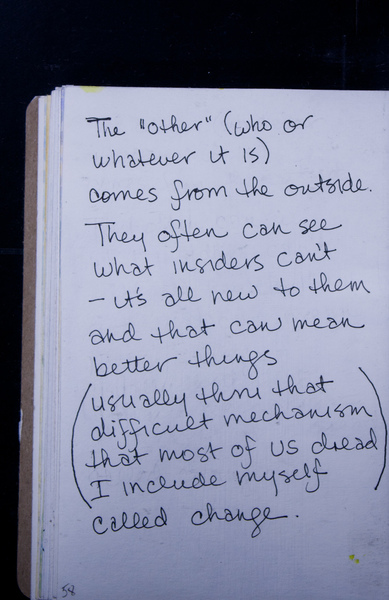 The "other" (who or
whatever it is)
comes from the outside.
They often can see
what insiders can't
– it's all new to them
and that can mean
better things
(usually thru that
difficult mechanism
that most of us dread
I include myself)
called change.
58